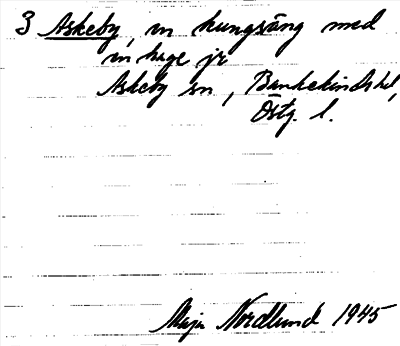 3 Askeby, en kungsäng med
en hage je
Askeby sn, Bankekinds hd,
Östg. l.
Maja Nordlund 1945